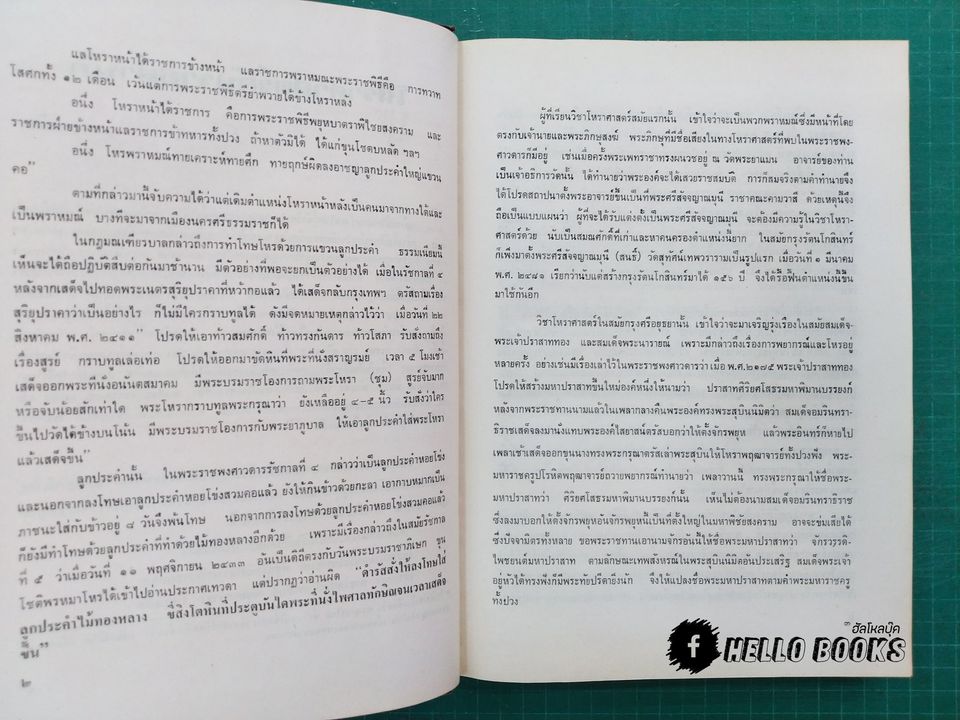 แลโหราหน้าได้ราชการข้างหน้า แลราชการพราหมณะพระราชพิธีคือ การทวาท
โสศกทั้ง ๑๒ เดือน เว้นแต่การพระราชพิธีตรียำพวายได้ข้างโหราหลัง
อนึ่ง โหราหน้าได้ราชการ คือการพระราชพิธีพยุหบาตราพิไชยสงคราม และ
ราชการฝ่ายข้างหน้าแลราชการข้าทหารทั้งปวง ถ้าหาตัวมิได้ ได้แก่ขุนโชตบหลัด ฯลฯ
อนึ่ง โหรพราหมณ์ทายเคราะห์ทายศึก ทายฤกษ์ผิดลงอาชญาลูกประคำใหญ่แขวน
คอ”
ตามที่กล่าวมานี้จับความได้ว่าแต่เดิมตำแหน่งโหราหน้าหลังเป็นคนมาจากทางใต้และ
เป็นพราหมณ์ บางทีจะมาจากเมืองนครศรีธรรมราชก็ได้
ในกฎมณเฑียรบาลกล่าวถึงการทำโทษโหรด้วยการแขวนลูกประคำ ธรรมเนียมนี้
เห็นจะได้ถือปฏิบัติสืบต่อกันมาช้านาน มีตัวอย่างที่พอจะยกเป็นตัวอย่างได้ เมื่อในรัชกาลที่ ๔
หลังจากเสด็จไปทอดพระเนตรสุริยุปราคาที่หว้ากอแล้ว ได้เสด็จกลับกรุงเทพฯ ตรัสถามเรื่อง
สุริยุปราคาว่าเป็นอย่างไร ก็ไม่มีใครกราบทูลได้ ดังมีจดหมายเหตุกล่าวไว้ว่า เมื่อวันที่ ๒๒
สิงหาคม พ.ศ. ๒๔๑๑” โปรดให้เอาท้าวสมศักดิ์ ท้าวทรงกันดาร ท้าวโสภา รับสั่งถามถึง
เรื่องสูรย์ กราบทูลเล่อเท่อ โปรดให้ออกมาขัดหินที่พระที่นั่งสราญรมย์ เวลา ๕ โมงเช้า
เสด็จออกพระที่นั่งอนันตสมาคม มีพระบรมราชโองการถามพระโหรา (ชุม) สูรย์จับมาก
หรือจับน้อยสักเท่าใด พระโหรากราบทูลพระกรุณาว่า ยังเหลืออยู่ ๔-๕ นิ้ว รับสั่งว่าใคร
ขึ้นไปวัดได้ข้างบนโน้น มีพระบรมราชโองการกับพระยาภูบาล ให้เอาลูกประคำใส่พระโหรา
แล้วเสด็จขึ้น”
ลูกประคำนั้น ในพระราชพงศาวดารรัชกาลที่ ๔ กล่าวว่าเป็นลูกประคำหอยโข่ง
และนอกจากลงโทษเอาลูกประคำหอยโข่งสวมคอแล้ว ยังให้กินข้าวด้วยกะลา เอากาบหมากเป็น
ภาชนะใส่กับข้าวอยู่ ๘ วันจึงพ้นโทษ นอกจากการลงโทษด้วยลูกประคำหอยโข่งสวมคอแล้ว
ก็ยังมีทำโทษด้วยลูกประคำที่ทำด้วยไม้ทองหลางอีกด้วย เพราะมีเรื่องกล่าวถึงในสมัยรัชกาล
ที่ ๕ ว่าเมื่อวันที่ ๑๑ พฤศจิกายน ๒๔๓๓ อันเป็นดิถีตรงกับวันพระบรมราชาภิเษก ขุน
โชติพรหมาโหรได้เข้าไปอ่านประกาศเทวดา แต่ปรากฏว่าอ่านผิด “ดำรัสสั่งให้ลงโทษใส่
ลูกประคำไม้ทองหลาง ขี่สิงโตหินที่ประตูบันไดพระที่นั่งไพศาลทักษิณจนเวลาเสด็จ
ขึ้น”
๒
ผู้ที่เรียนวิชาโหราศาสตร์สมัยแรกนั้น เข้าใจว่าจะเป็นพวกพราหมณ์ซึ่งมีหน้าที่โดย
ตรงกับเจ้านายและพระภิกษุสงฆ์ พระภิกษุที่มีชื่อเสียงในทางโหราศาสตร์ที่พบในพระราชพง-
ศาวดารก็มีอยู่ เช่นเมื่อครั้งพระเพทราชาทรงผนวชอยู่ ณ วัดพระยาแมน อาจารย์ของท่าน
เป็นเจ้าอธิการวัดนั้น ได้ทำนายว่าพระองค์จะได้เสวยราชสมบัติ การก็สมจริงตามคำทำนายจึง
ได้โปรดสถาปนาตั้งพระอาจารย์ขึ้นเป็นที่พระศรีสัจจญาณมุนี ราชาคณะคามวาสี ด้วยเหตุนี้จึง
ถือเป็นแบบแผนว่า ผู้ที่จะได้รับแต่งตั้งเป็นพระศรีสัจจญาณมุนี จะต้องมีความรู้ในวิชาโหรา-
ศาสตร์ด้วย นับเป็นสมณศักดิ์ที่เก่าและหาคนครองตำแหน่งนี้ยาก ในสมัยกรุงรัตนโกสินทร์
ก็เพิ่งมาตั้งพระศรีสัจจญาณมุนี (สนธิ์) วัดสุทัศน์เทพวรารามเป็นรูปแรก เมื่อวันที่ ๑ มีนาคม
พ.ศ. ๒๔๘๑ เรียกว่านับแต่สร้างกรุงรัตนโกสินทร์มาได้ ๑๕๖ ปี จึงได้รื้อฟื้นตำแหน่งนี้ขึ้น
มาใช้กันอีก
วิชาโหราศาสตร์ในสมัยกรุงศรีอยุธยานั้น เข้าใจว่าจะมาเจริญรุ่งเรืองในสมัยสมเด็จ-
พระเจ้าปราสาททอง และสมเด็จพระนารายณ์ เพราะมีกล่าวถึงเรื่องการพยากรณ์และโหรอยู่
หลายครั้ง อย่างเช่นมีเรื่องเล่าไว้ในพระราชพงศาวดารว่า เมื่อ พ.ศ.๒๑๗๕ พระเจ้าปราสาททอง
โปรดให้สร้างมหาปราสาทขึ้นใหม่องค์หนึ่งให้นามว่า ปราสาทศิริยศโสธรมหาพิมานบรรยงก์
หลังจากพระราชทานนามแล้วในเพลากลางคืนพระองค์ทรงพระสุบินนิมิตว่า สมเด็จอมรินทรา-
ธิราชเสด็จลงมานั่งแทบพระองค์ไสยาสน์ตรัสบอกว่าให้ตั้งจักรพยุห แล้วพระอินทร์ก็หายไป
เพลาเช้าเสด็จออกขุนนางทรงพระกรุณาตรัสเล่าพระสุบินให้โหราพฤฒาจารย์ทั้งปวงฟัง พระ-
มหาราชครูปโรหิตพฤฒาจารย์ถวายพยากรณ์ทำนายว่า เพลาวานนี้ ทรงพระกรุณาให้ชื่อพระ-
มหาปราสาทว่า ศิริยศโสธรมหาพิมานบรรยงก์นั้น เห็นไม่ต้องนามสมเด็จอมรินทราธิราช
ซึ่งลงมาบอกให้ตั้งจักรพยุหอันจักรพยุหนี้เป็นที่ตั้งใหญ่ในมหาพิชัยสงคราม อาจจะข่มเสียได้
ซึ่งปัจจามิตรทั้งหลาย ขอพระราชทานเอานามจักรอันนี้ให้ชื่อพระมหาปราสาทว่า จักรวรรดิ-
ไพชยนต์มหาปราสาท ตามลักษณะเทพสังหรณ์ในพระสุบินนิมิตอันประเสริฐ สมเด็จพระเจ้า
อยู่หัวได้ทรงฟังก็มีพระทัยปรีดายิ่งนัก จึงให้แปลงชื่อพระมหาปราสาทตามคำพระมหาราชครู
ทั้งปวง
๓
ฮัลโหลบุ๊ค
HELLO BOOKS